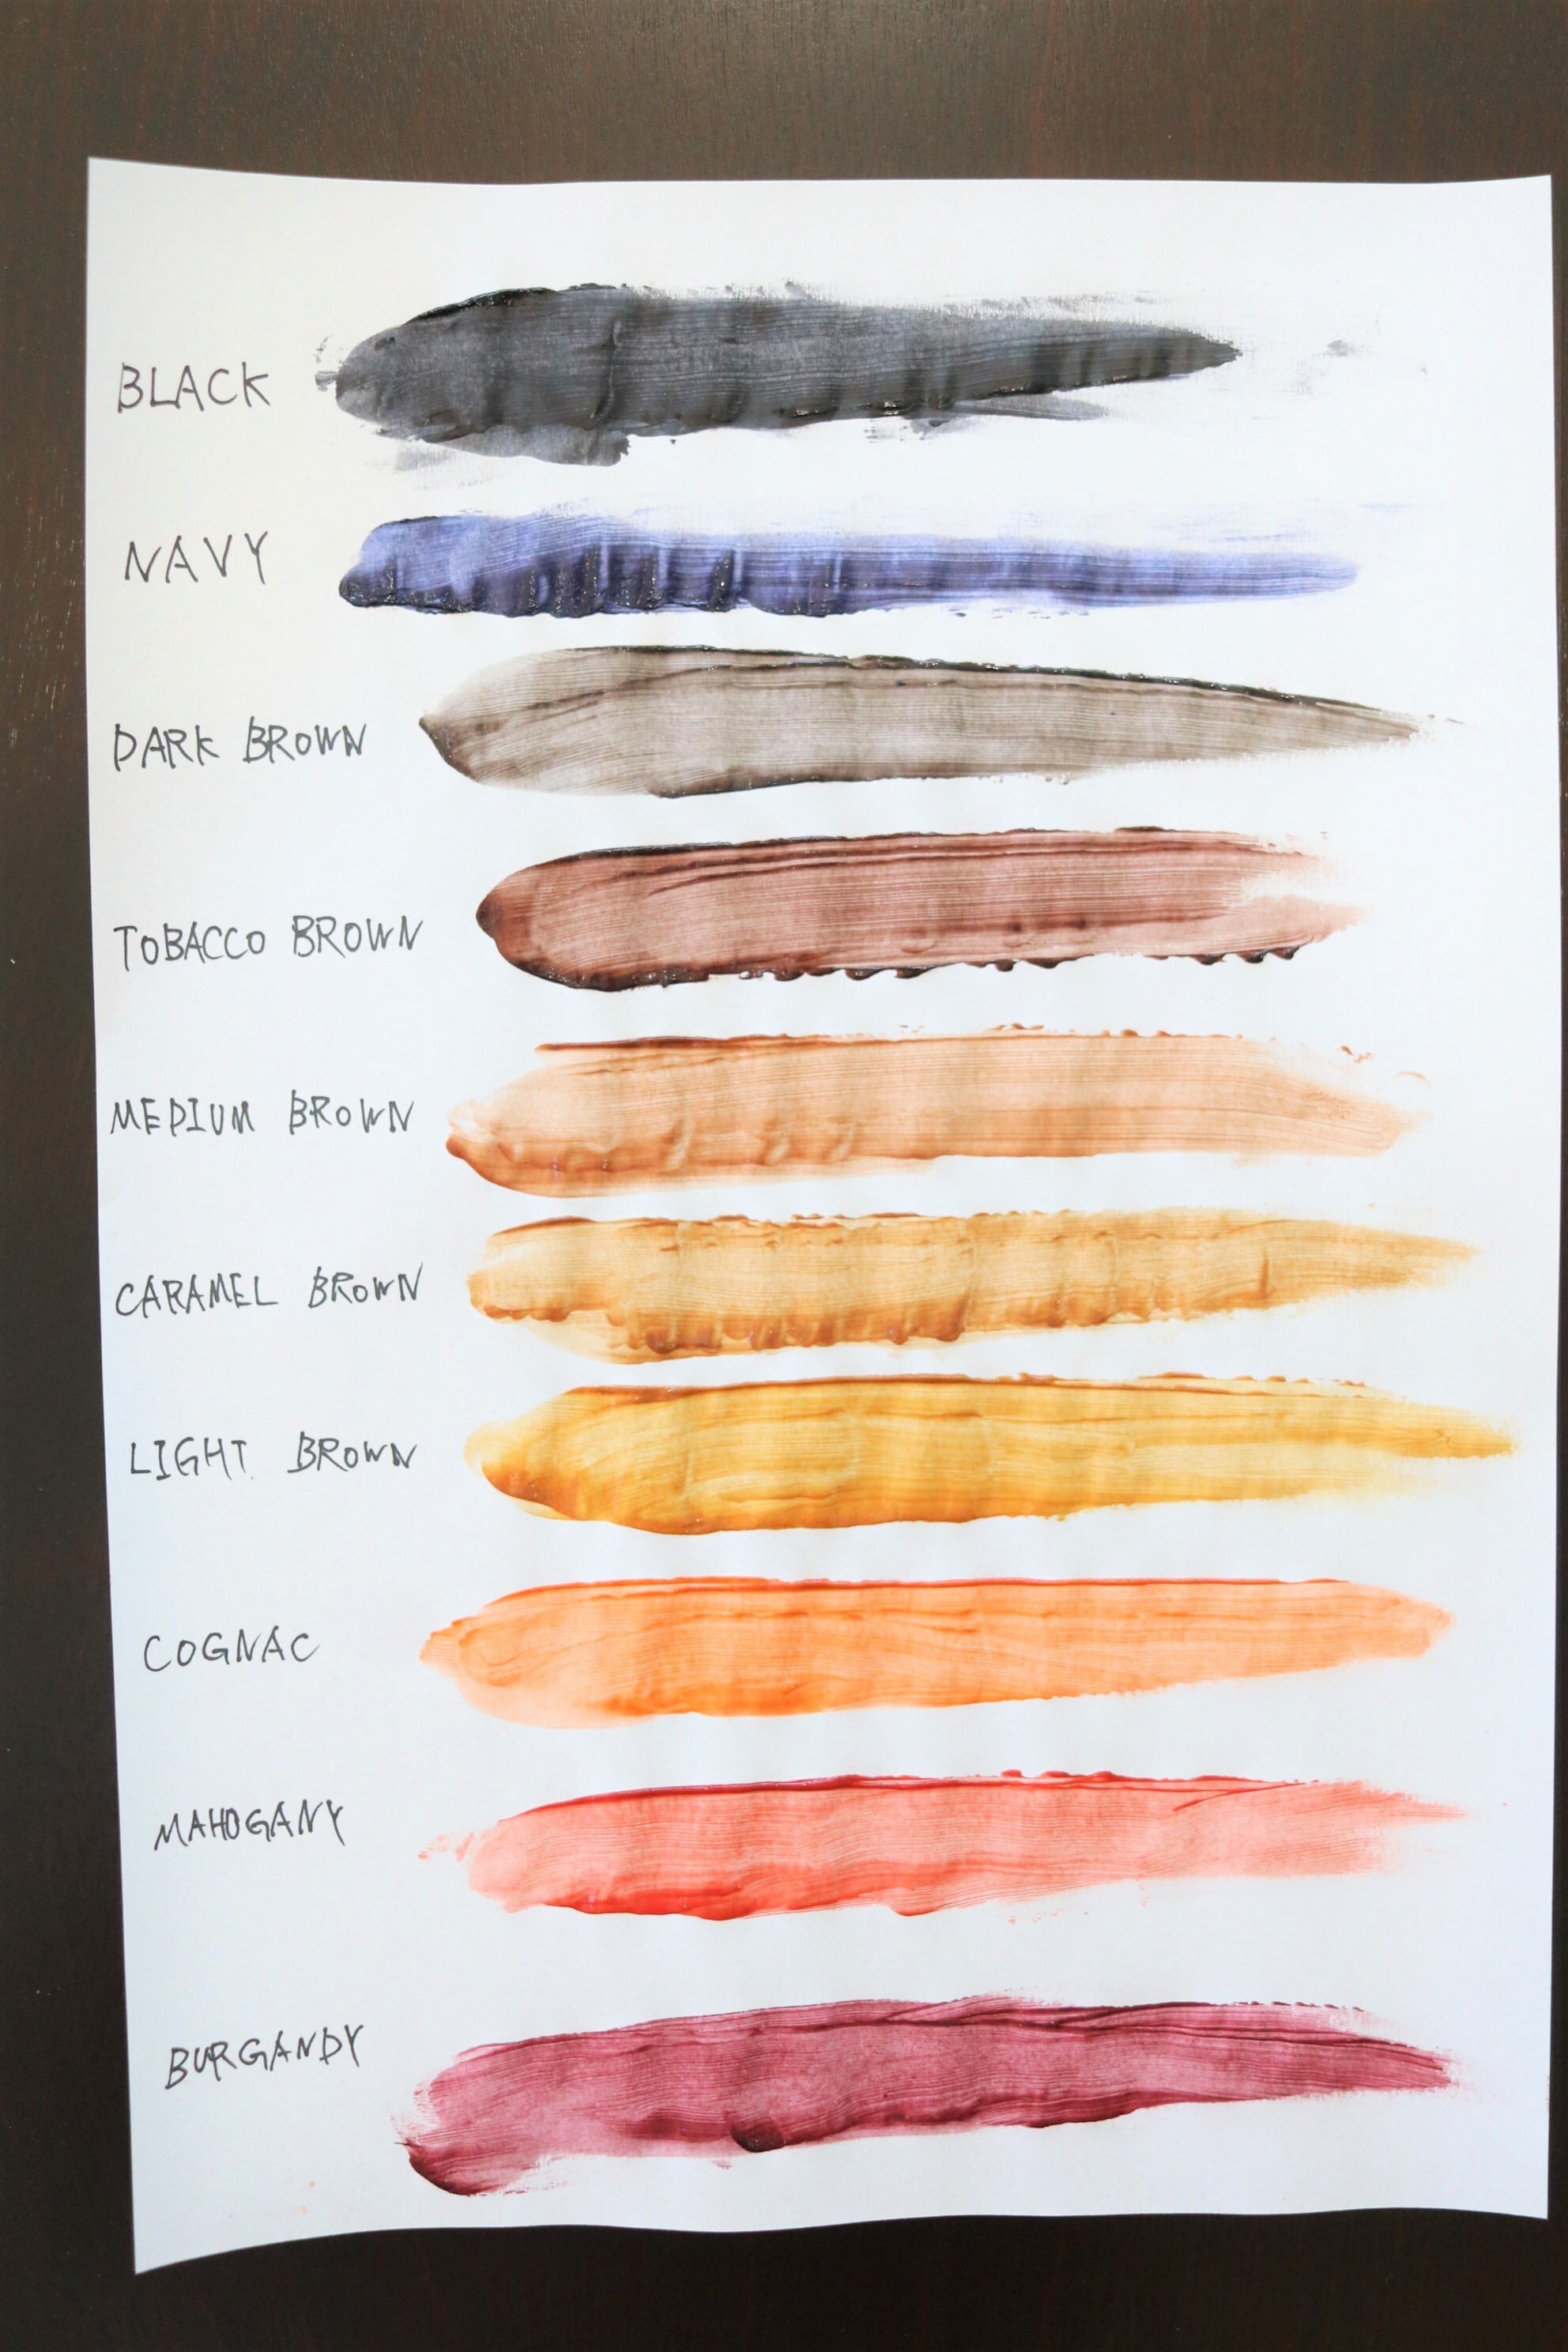 BLACK
NAVY
DARK BROWN
TOBACCO BROWN
MEDIUM BROWN
CARAMEL BROWN
LIGHT BROWN
COGNAC
MAHOGANY
BURGANDY